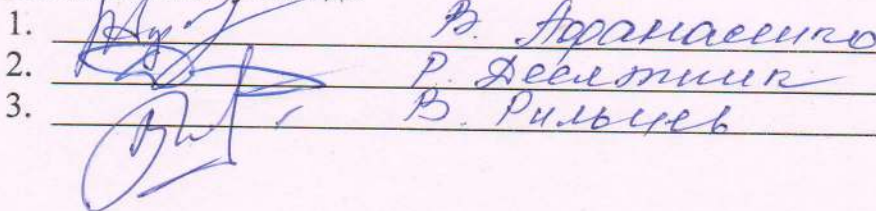 1. В. Афанасенко
2. Р. Десятник
3. В. Рильцев